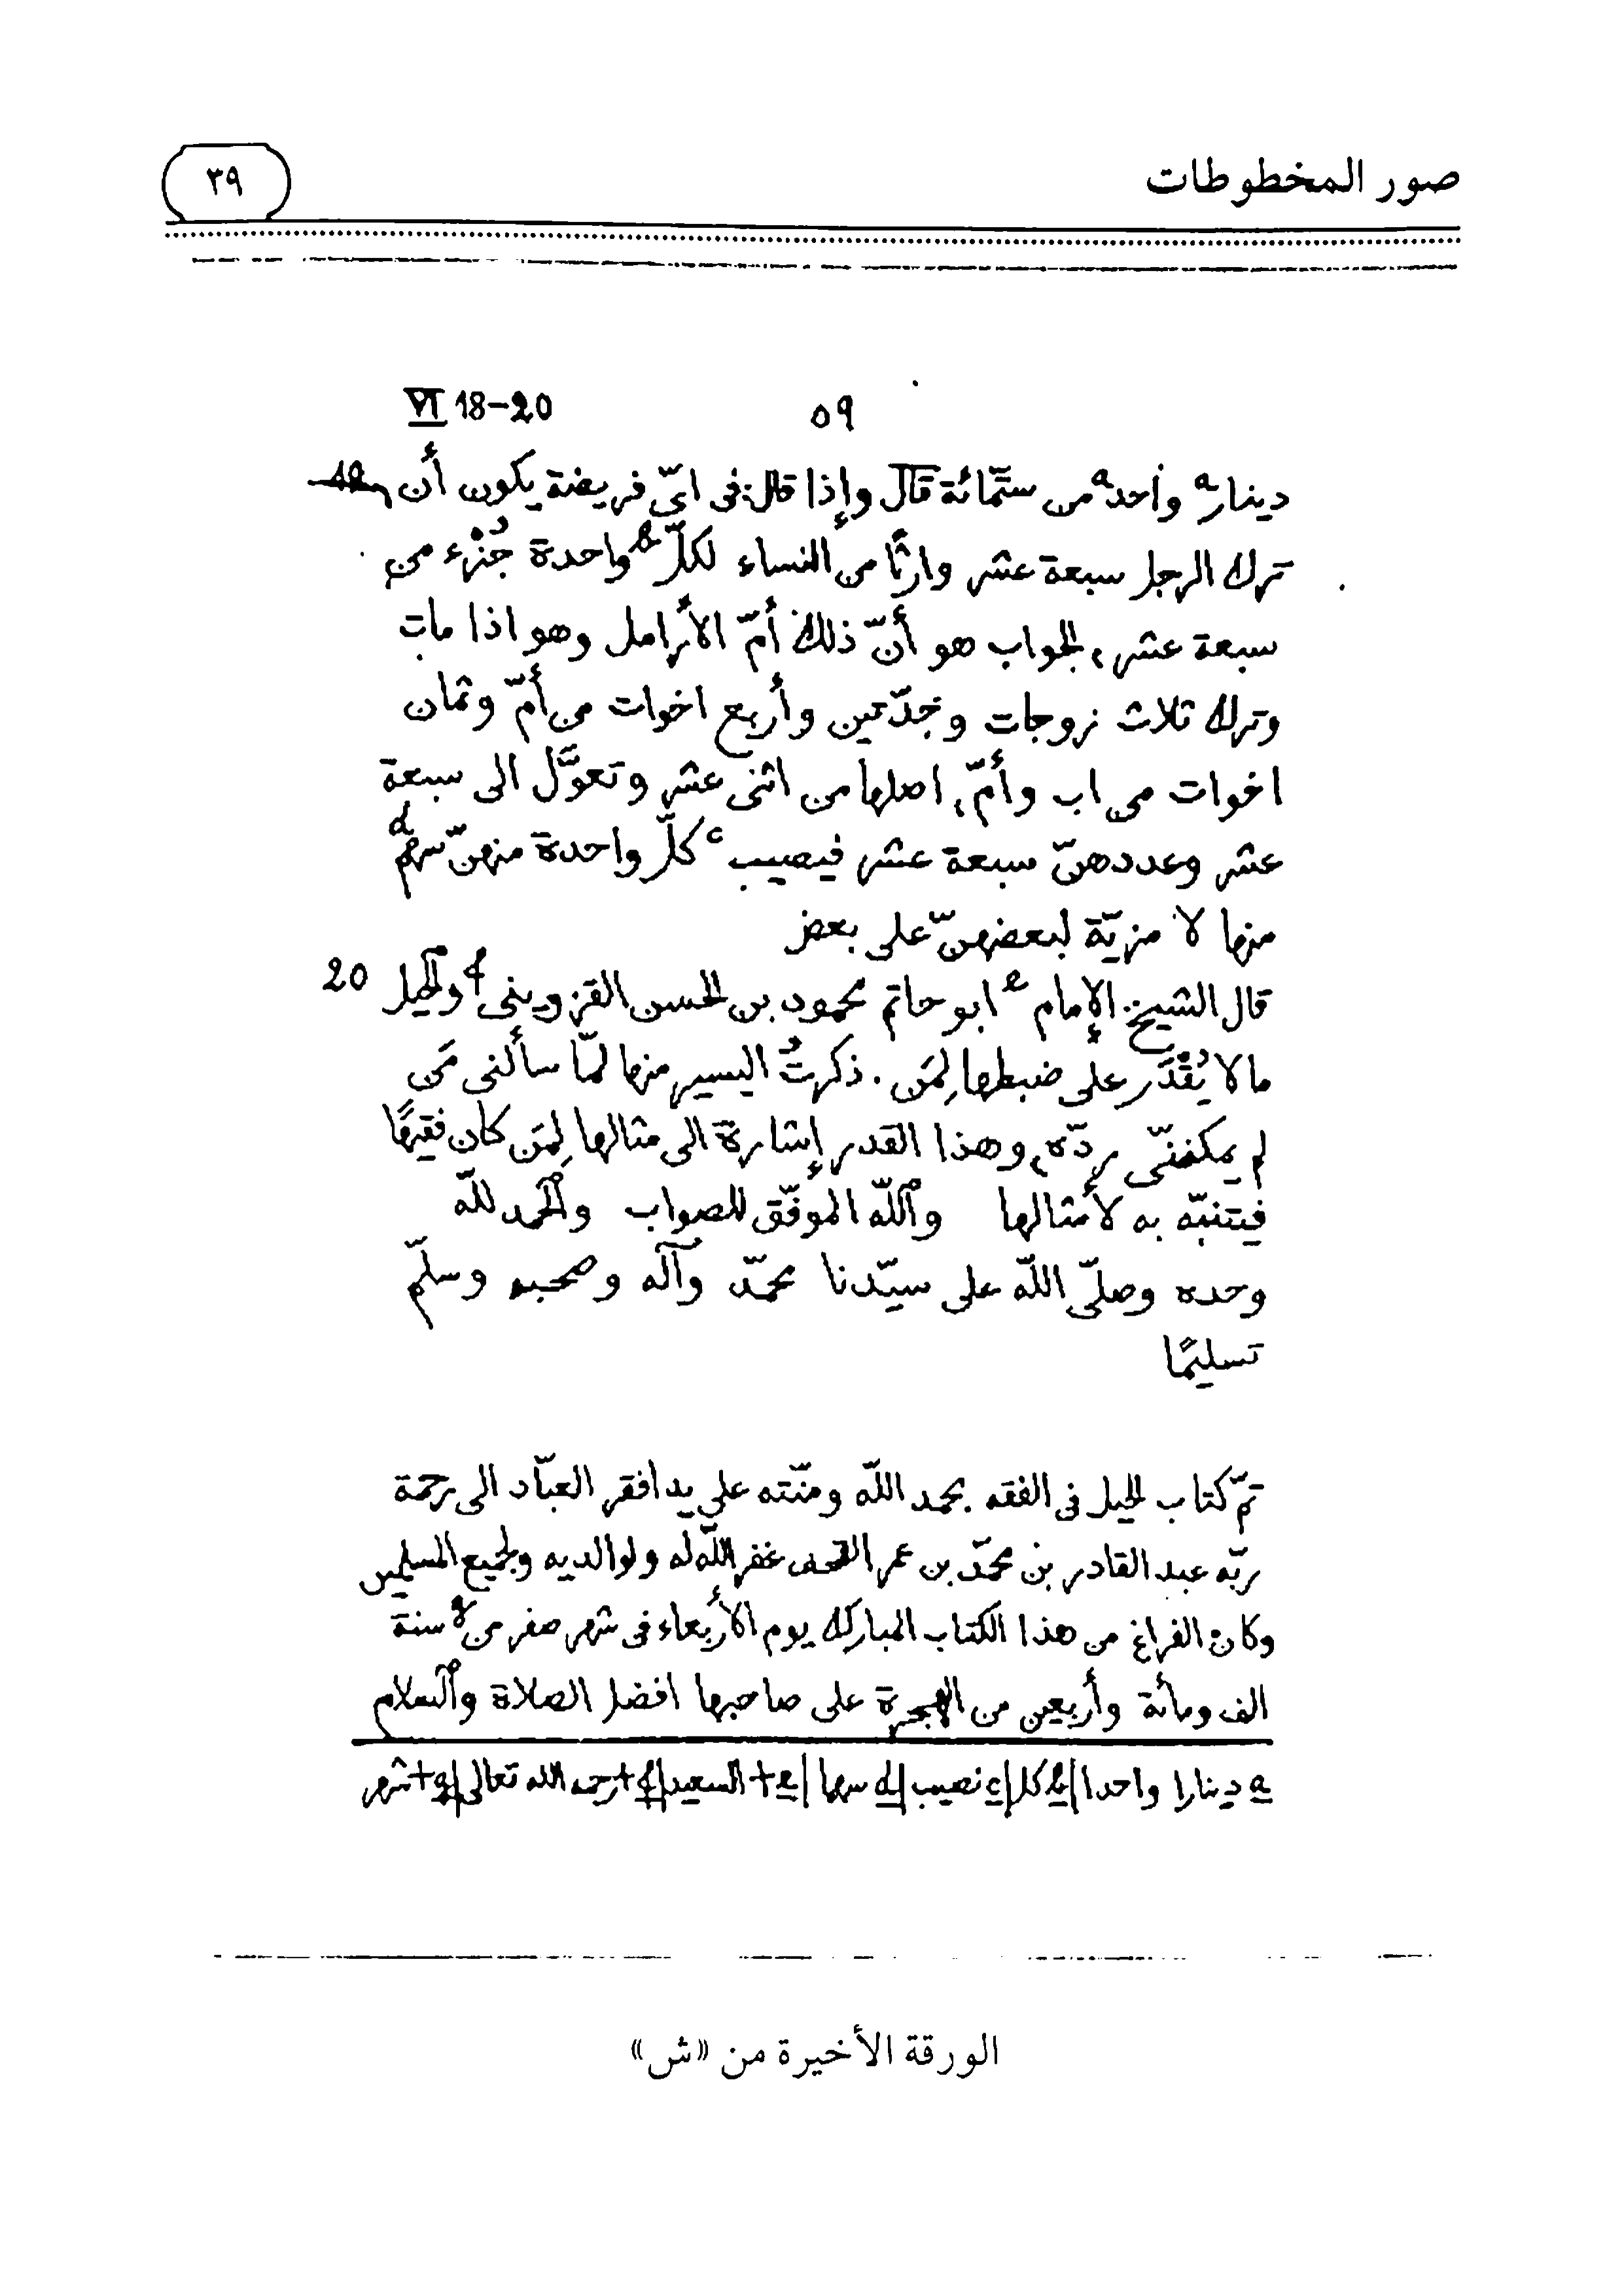 صور المخطوطات
٣٩
٥٩
VI 18-20
دينار a واحد a من ستّمائة قال وإذا قال: فى اىّ فريضة يكون أن
ترك الرجل سبعة عشر وارثًا من النساء لكلّ b واحدة جُزْء من
سبعة عشر، الجواب هو أنّ ذلك أمّ الأرامل وهو اذا مات
وترك ثلاث زوجات وجدّتين وأربع اخوات من أمّ وثمان
اخوات من اب وأمّ، اصلها من اثنى عشر وتعوَّل الى سبعة
عشر وعددهنّ سبعة عشر فيصيب c كلّ واحدة منهنّ سهمٌ d
منها لا مزيّة لبعضهنّ على بعض
قال الشيخ الإمام e ابو حاتم محمود بن الحسن القزوينى f وٱلحيل 20
ما لا يُقْدَر على ضبطها لِمَن . ذكرتُ اليسير منها لمّا سألنى مَن
لم يمكننّى ردّه، وهذا القدر إشارة الى مثالها لِمَن كان فقيهًا
فيتنبّه به لأمثالها وٱللّه الموفّق للصواب وٱلحمد للّه
وحده وصلّى اللّه على سيّدنا محمّد وآله وصحبه وسلّم
تسليمًا
تمّ كتاب الحيل فى الفقه بحمد اللّه ومنّته على يد افقر العبّاد الى رحمة
ربّه عبد القادر بن محمّد بن عمر غفر اللّه له ولوالديه ولجميع المسلمين
وكان الفراغ من هذا الكتاب المبارك يوم الأربعاء فى شهر صفر من g سنة
الف ومائة وأربعين من الهجرة على صاحبها افضل الصلاة وٱلسلام
a دينارا واحدا | b كل | c نصيب | d سهما | e + السعيد | f + رحمه الله تعالى | g + شهر
الورقة الأخيرة من «ش»